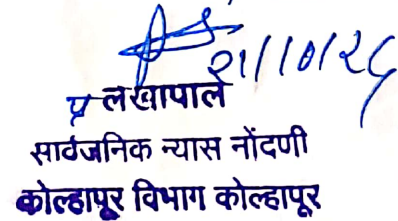 २१/१०/२५
प्र लेखापाल
सार्वजनिक न्यास नोंदणी
कोल्हापूर विभाग कोल्हापूर